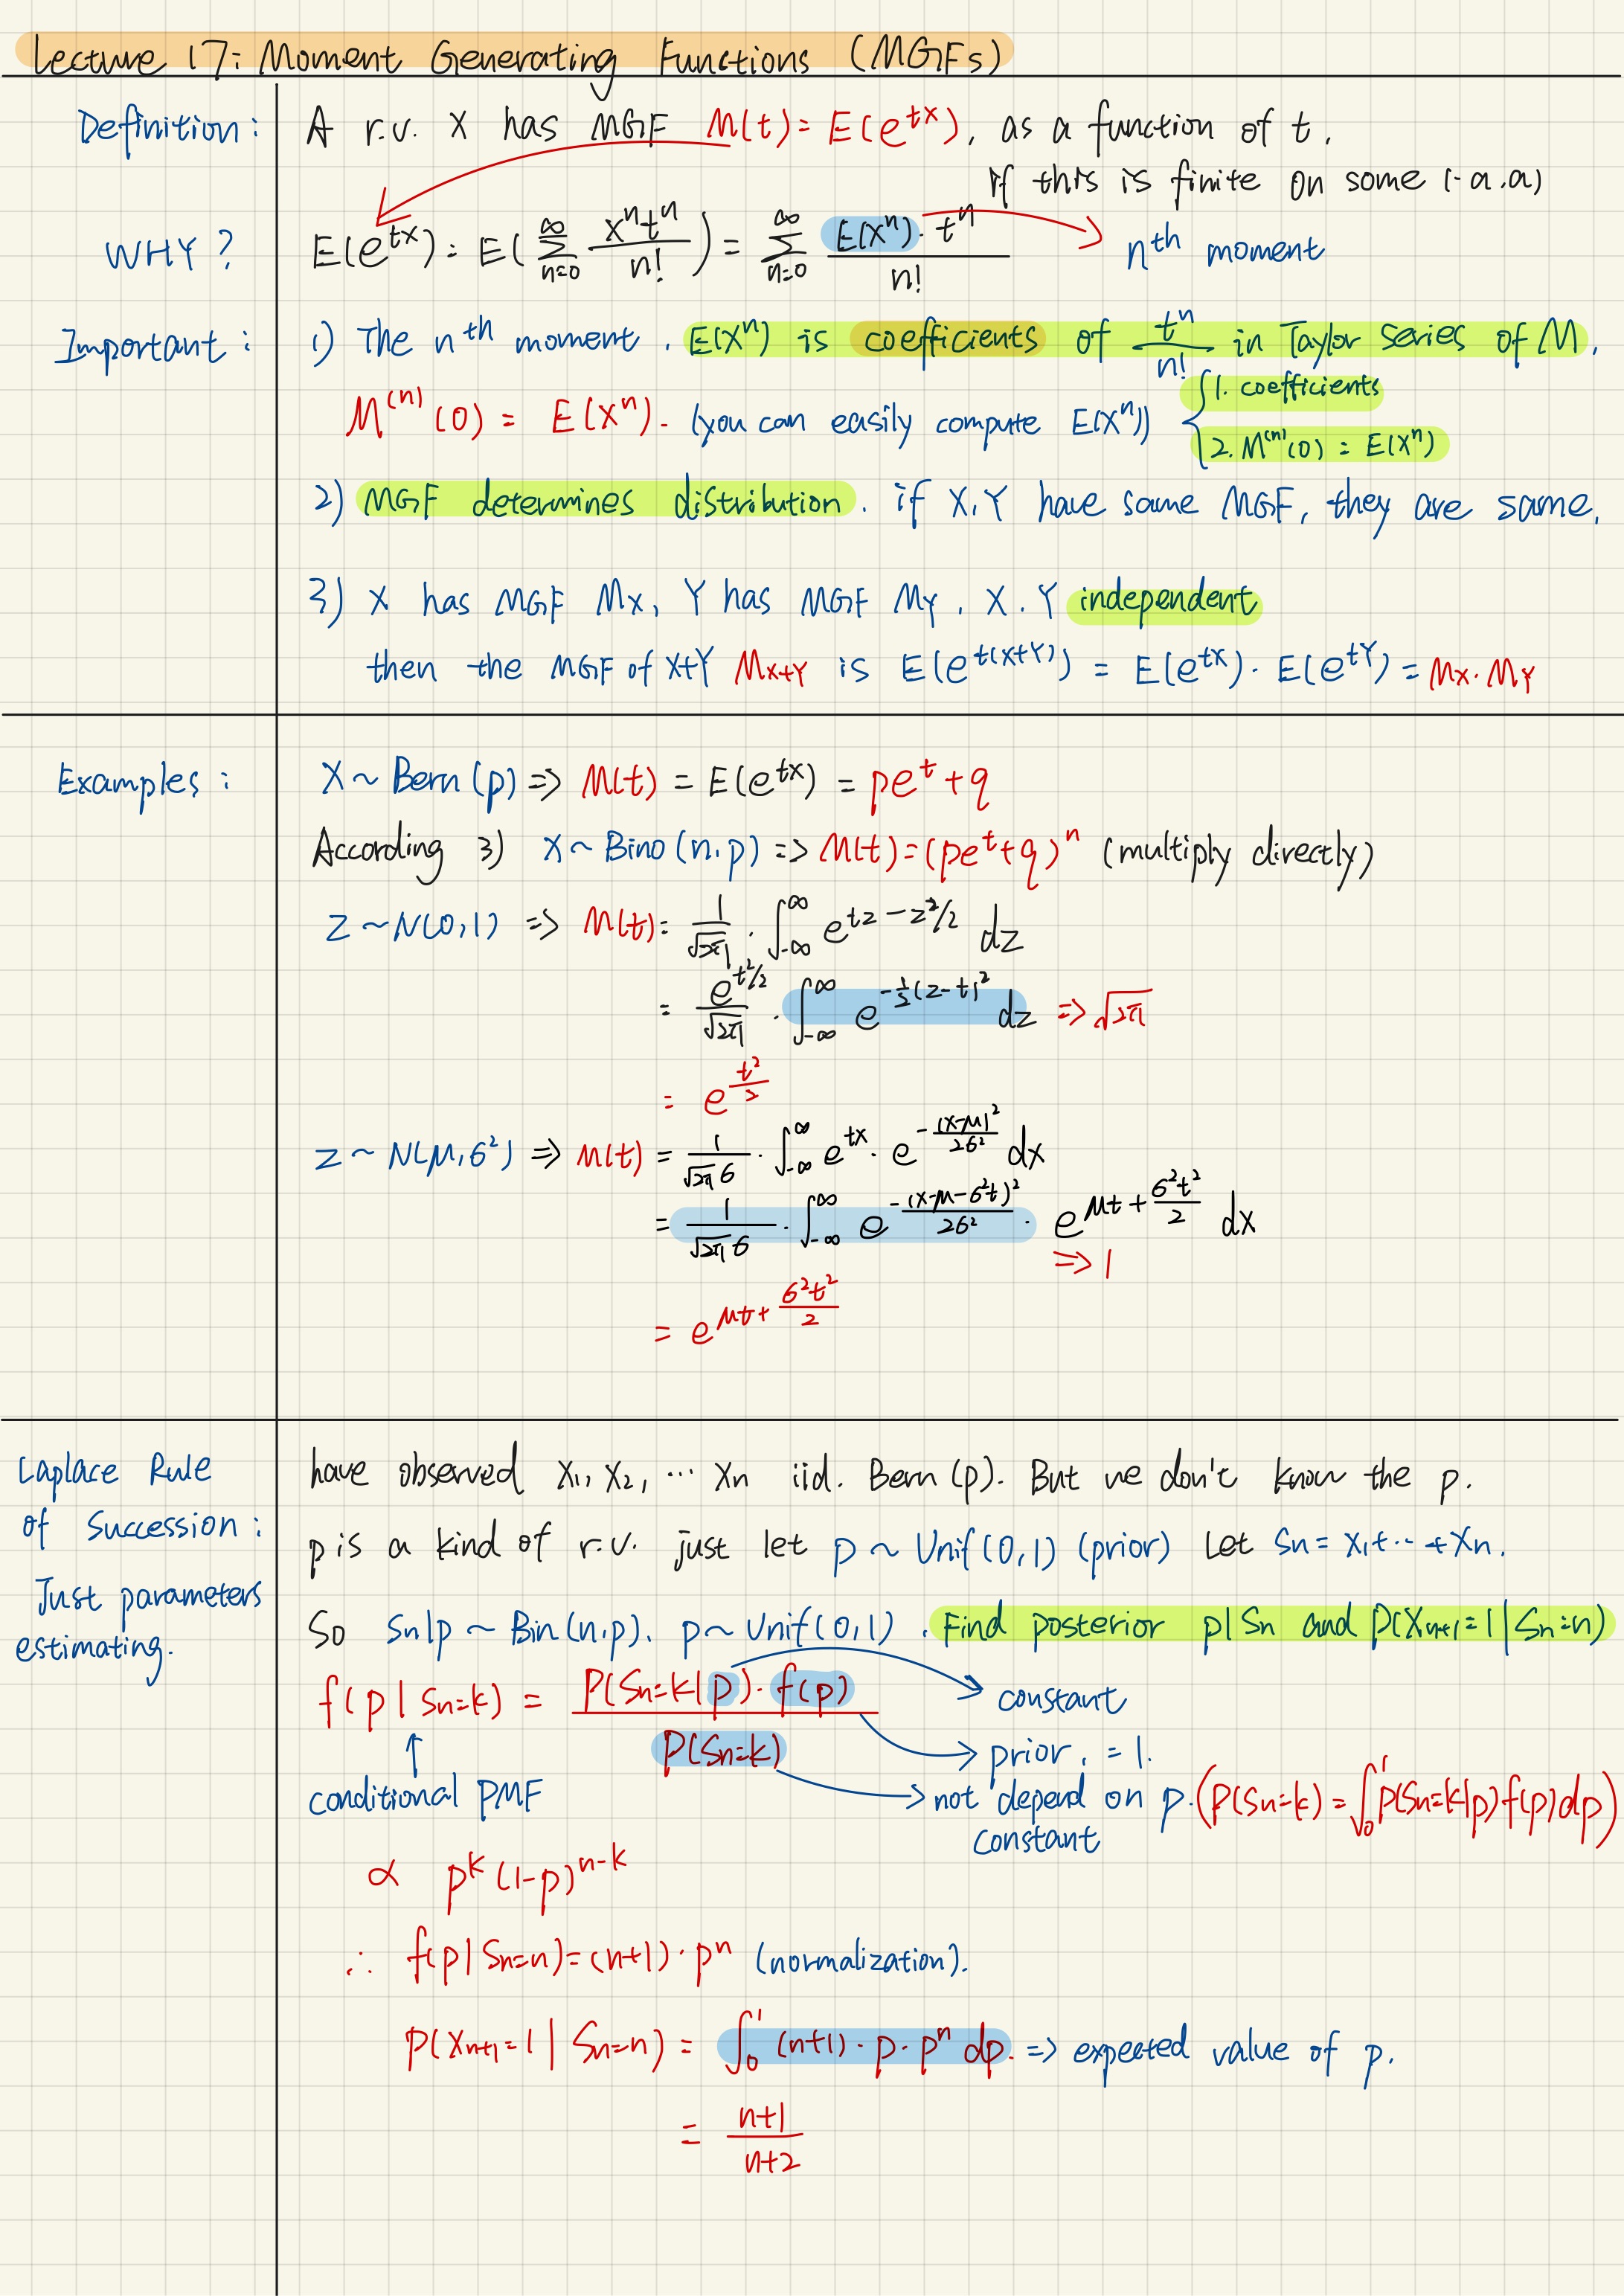 Lecture 17: Moment Generating Functions (MGFs)
Definition: A r.v. X has MGF M(t) = E(e^{tx}), as a function of t,
if this is finite on some (-a.a)
WHY? E(e^{tx}) = E(∑_{n=0}^{∞} x^n t^n / n!) = ∑_{n=0}^{∞} E(x^n)·t^n / n! → n^{th} moment
Important: 1) The n^{th} moment. E(X^n) is coefficients of t^n/n! in Taylor series of M.
M^{(n)}(0) = E(X^n). (you can easily compute E(X^n)) { 1. coefficients
2. M^{(n)}(0) = E(X^n)
2) MGF determines distribution. if X,Y have same MGF, they are same.
3) X has MGF Mx, Y has MGF My. X.Y independent
then the MGF of X+Y M_{X+Y} is E(e^{t(X+Y)}) = E(e^{tX})·E(e^{tY}) = Mx·My
Examples: X ~ Bern(p) => M(t) = E(e^{tx}) = pe^t + q
According 3) X ~ Bino(n,p) => M(t) = (pe^t+q)^n (multiply directly)
Z ~ N(0,1) => M(t) = 1/√2π · ∫_{-∞}^{∞} e^{tz - z²/2} dz
= e^{t²/2}/√2π · ∫_{-∞}^{∞} e^{-½(z-t)²} dz => √2π
= e^{t²/2}
Z ~ N(μ,σ²) => M(t) = 1/√2π σ · ∫_{-∞}^{∞} e^{tx} · e^{-(x-μ)²/2σ²} dx
= 1/√2π σ · ∫_{-∞}^{∞} e^{-(x-μ-σ²t)²/2σ²} · e^{μt + σ²t²/2} dx
=> 1
= e^{μt + σ²t²/2}
Laplace Rule
of Succession:
Just parameters
estimating.
have observed X₁, X₂, ··· Xn iid. Bern(p). But we don't know the p.
p is a kind of r.v. just let p ~ Unif(0,1) (prior) Let Sn = X₁+···+Xn.
So Sn|p ~ Bin(n,p). p ~ Unif(0,1). Find posterior p|Sn and P(X_{n+1}=1|Sn=n)
f(p|Sn=k) = P(Sn=k|p)·f(p) / P(Sn=k) → constant
→ prior, = 1.
↑
conditional PMF
→ not depend on p. (P(Sn=k) = ∫_0^1 P(Sn=k|p)f(p)dp)
constant
∝ p^k (1-p)^{n-k}
∴ f(p|Sn=n) = (n+1)·p^n (normalization).
P(X_{n+1}=1 | Sn=n) = ∫_0^1 (n+1)·p·p^n dp. => expected value of p.
= n+1 / n+2